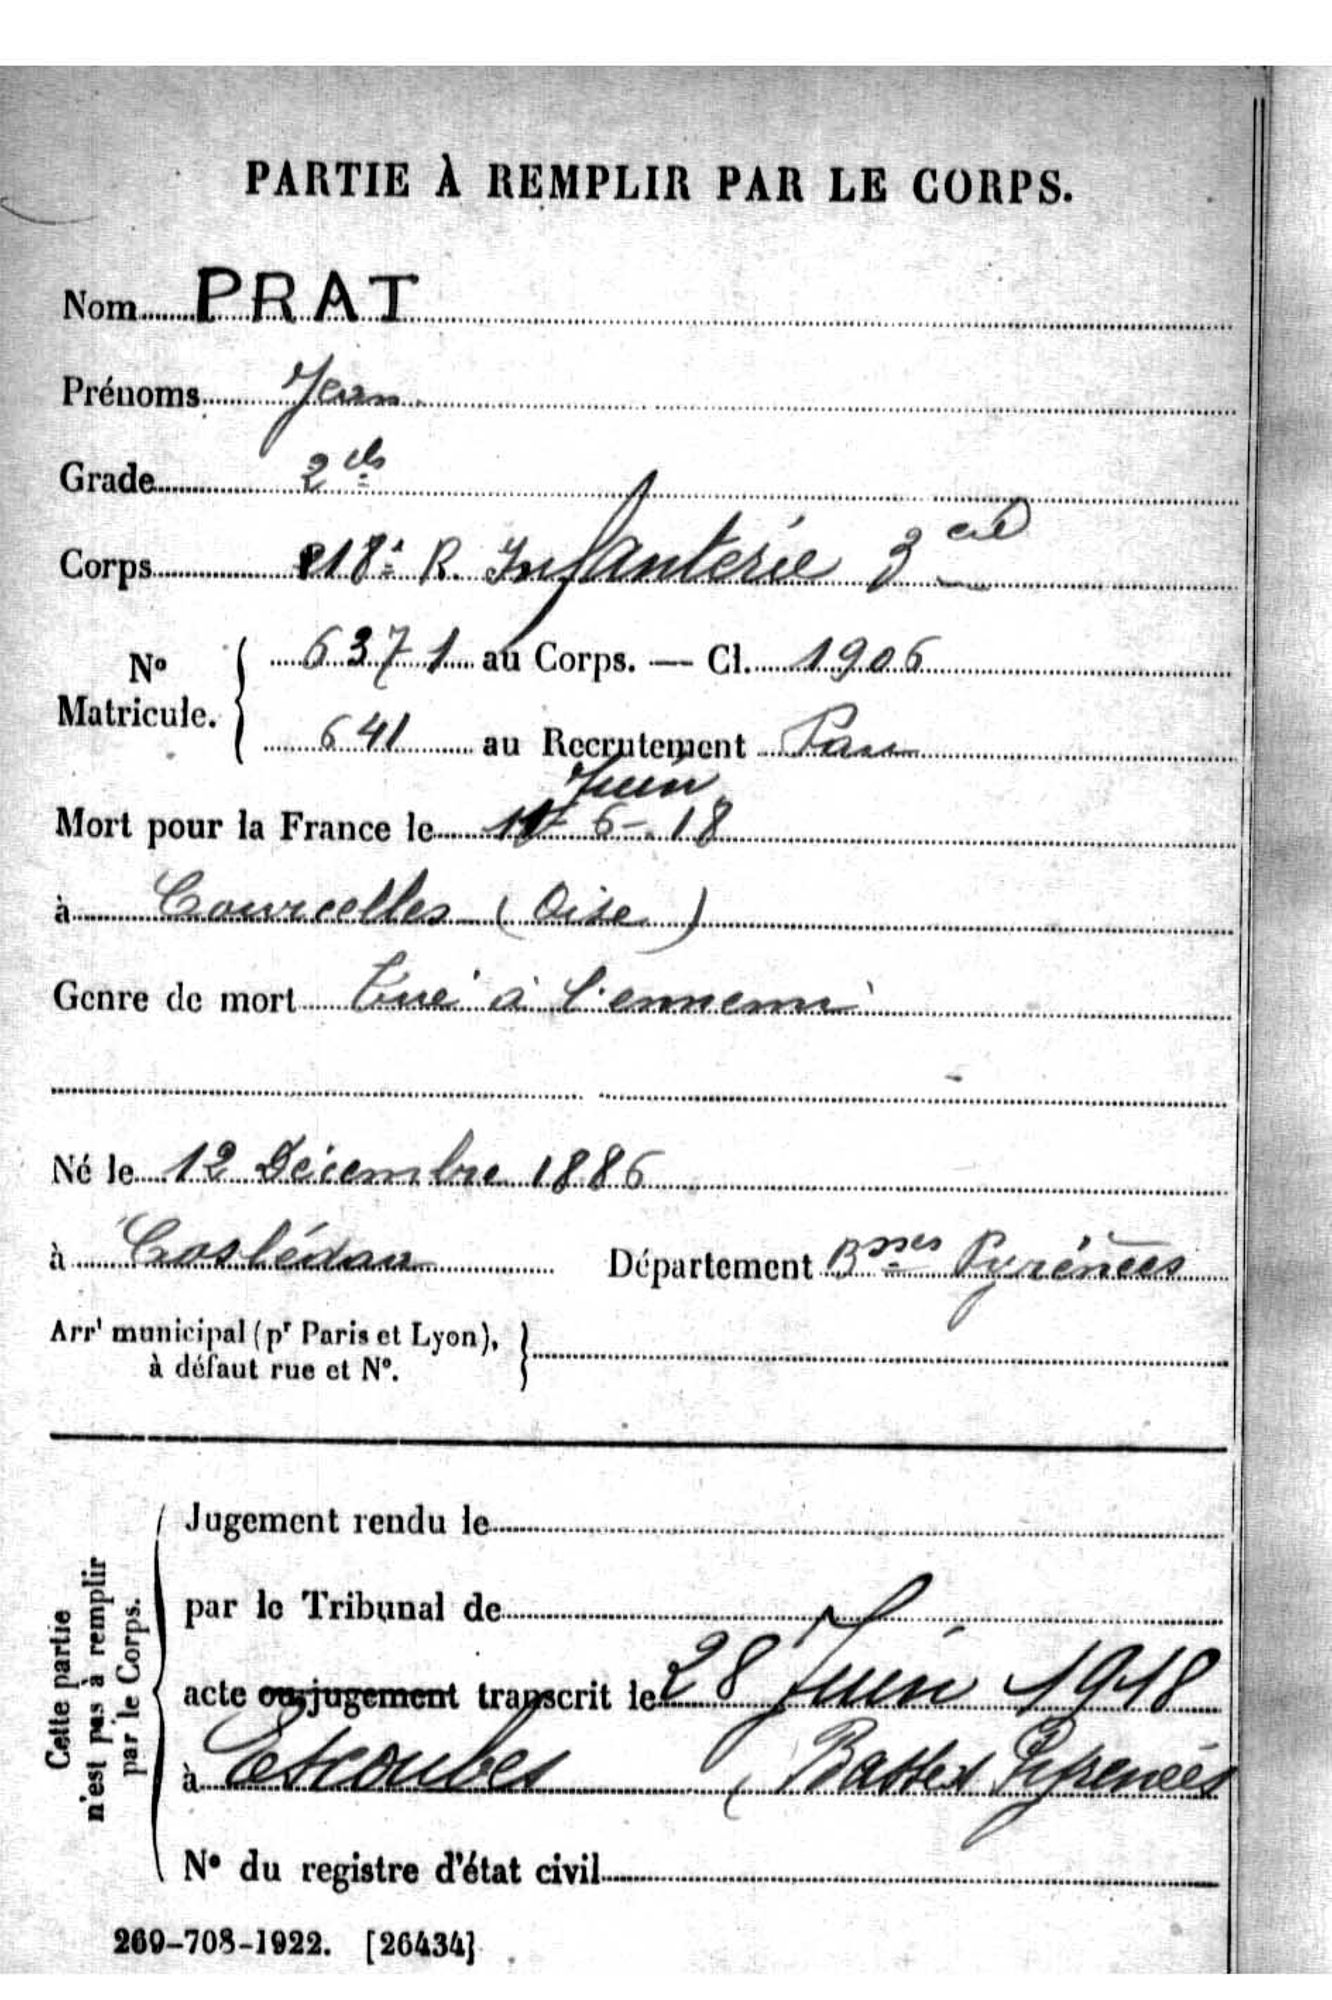 PARTIE À REMPLIR PAR LE CORPS.
Nom PRAT
Prénoms Jean
Grade 2e cls
Corps 218e R. Infanterie 3 cie
No Matricule. 6371 au Corps. — Cl. 1906
641 au Recrutement Pau
Juin
Mort pour la France le 11-6-18
à Courcelles (Oise)
Genre de mort Tué à l'ennemi
Né le 12 Décembre 1886
à Coslédaa Département Bsses Pyrénées
Arrt municipal (pr Paris et Lyon),
à défaut rue et No.
Cette partie
n'est pas à remplir
par le Corps.
Jugement rendu le
par le Tribunal de
acte ou jugement transcrit le 28 Juin 1918
à Escoubes (Basses Pyrenées
No du registre d'état civil
269-708-1922. [26434]